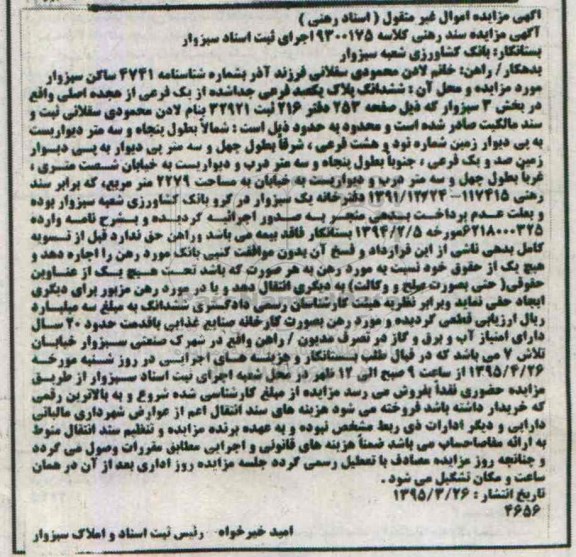 آگهی مزایده اموال غیر منقول ( اسناد رهنی )
آگهی مزایده سند رهنی کلاسه ۹۳۰۰۱۷۵اجرای ثبت اسناد سبزوار
بستانکار: بانک کشاورزی شعبه سبزوار
بدهکار/ راهن: خانم لادن محمودی سقلانی فرزند آذر بشماره شناسنامه ۴۷۴۱ ساکن سبزوار
مورد مزایده و محل آن : ششدانگ پلاک یکصد فرعی جداشده از یک فرعی از هجده اصلی واقع
در بخش ۳ سبزوار که ذیل صفحه ۲۵۳ دفتر ۲۱۶ ثبت ۳۲۹۲۱ بنام لادن محمودی سقلانی ثبت و
سند مالکیت صادر شده است و محدود به حدود ذیل است : شمالاً بطول پنجاه و سه متر دیواریست
به پی دیوار زمین شماره نود و هشت فرعی ، شرقاً بطول چهل و سه متر پی دیوار به پسی دیوار
زمین صد و یک فرعی ، جنوباً بطول پنجاه و سه متر درب و دیواریست به خیابان شصت متری ،
غرباً بطول چهل و سه متر درب و دیواریست به خیابان به مساحت ۲۲۷۹ متر مربع، که برابر سند
رهنی ۱۱۷۴۱۵– ۱۳۹۱/۱۲/۲۴ دفترخانه یک سبزوار در گرو بانک کشاورزی شعبه سبزوار بوده
و بعلت عدم پرداخت بدهی منجر به صدور اجرائیه گردیده و بشرح نامه وارده
۶۲۱۸۰۰۰۳۲۵مورخه ۱۳۹۴/۲/۵ بستانکار فاقد بیمه می باشد وراهن حق ندارد قبل از تسویه
کامل بدهی ناشی از این قرارداد و فسخ آن بدون موافقت کتبی بانک مورد رهن را اجاره دهد و
هیچ یک از حقوق خود نسبت به مورد رهن به هر صورت که باشد تحت هیچ یک از عناوین
حقوقی( حتی بصورت صلح و وکالت) به دیگری انتقال دهد و یا در مورد رهن مزبور برای دیگری
ایجاد حقی نماید وبرابر نظریه هیئت کارشناسان رسمی دادگستری ششدانگ به مبلغ سه میلیارد
ریال ارزیابی قطعی گردیده و مورد رهن بصورت کارخانه صنایع غذایی باقدمت حدود ۲۰ سال
دارای امتیاز آب و برق و گاز در تصرف مدیون / راهن واقع در شهرک صنعتی سبزوار خیابان
تلاش ۷ می باشد که در قبال طلب بستانکار و هزینه های اجرایی در روز شنبه مورخه
۱۳۹۵/۴/۲۶ از ساعت ۹ صبح الی ۱۲ ظهر در محل شعبه اجرای ثبت اسناد سبزوار از طریق
مزایده حضوری نقداً بفروش می رسد مزایده از مبلغ کارشناسی شده شروع و به بالاترین رقمی
که خریدار داشته باشد فروخته می شود هزینه های سند انتقال اعم از عوارض شهرداری مالیاتی
دارایی و دیگر ادارات ذی ربط مشخص نبوده و به عهده برنده مزایده و تنظیم سند انتقال منوط
به ارائه مفاصاحساب می باشد ضمناً هزینه های قانونی و اجرایی مطابق مقررات وصول می گردد
و چنانچه روز مزایده مصادف با تعطیل رسمی گردد جلسه مزایده روز اداری بعد از آن در همان
ساعت و مکان تشکیل می شود .
تاریخ انتشار : ۱۳۹۵/۳/۲۶
۴۶۵۶
امید خیرخواه - رئیس ثبت اسناد و املاک سبزوار